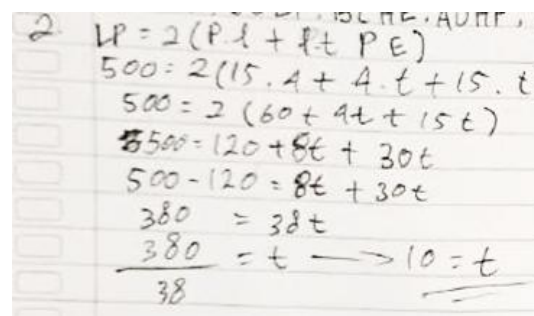 2. LP = 2(P.l + l.t P E)
500 = 2(15.4 + 4.t + 15.t
500 = 2 (60 + 4t + 15t)
500 = 120 + 8t + 30t
500 - 120 = 8t + 30t
380 = 38t
380/38 = t → 10 = t